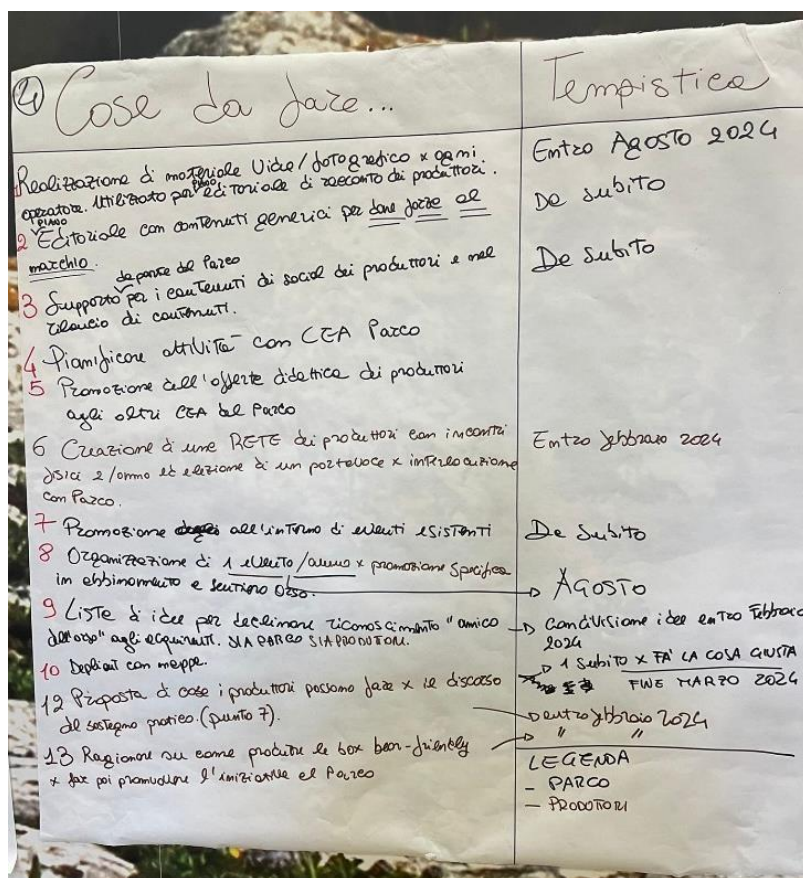 4 Cose da fare...
Tempistica
1 Realizzazione di materiale video/fotografico x ogni
operatore. Utilizzato per piano editoriale di racconto dei produttori.
Entro Agosto 2024
2 Piano Editoriale con contenuti generici per dare forza al
marchio.
Da subito
3 Supporto da parte del Parco per i contenuti di social dei produttori e nel
rilancio di contenuti.
Da subito
4 Pianificare attività con CEA Parco
5 Promozione dell'offerta didattica dei produttori
agli altri CEA del Parco
6 Creazione di una RETE dei produttori con incontri
fisici 2/anno ed elezione di un portavoce x interlocuzione
con Parco.
Entro febbraio 2024
7 Promozione all'interno di eventi esistenti
Da Subito
8 Organizzazione di 1 evento/anno x promozione specifica
in abbinamento a sentiero Orso.
AGOSTO
9 Lista di idee per declinare riconoscimento "amico
dell'orso" agli acquirenti. SIA PARCO SIA PRODUTTORI.
condivisione idee entro Febbraio
2024
10 Depliant con mappe.
1 Subito x FA' LA COSA GIUSTA
FINE MARZO 2024
12 Proposta di cose i produttori possono fare x il discorso
del sostegno pratico. (punto 7).
Dentro febbraio 2024
13 Ragionare su come produrre le box bear-friendly
x far poi promuovere l'iniziativa al Parco
" "
LEGENDA
- PARCO
- PRODUTTORI